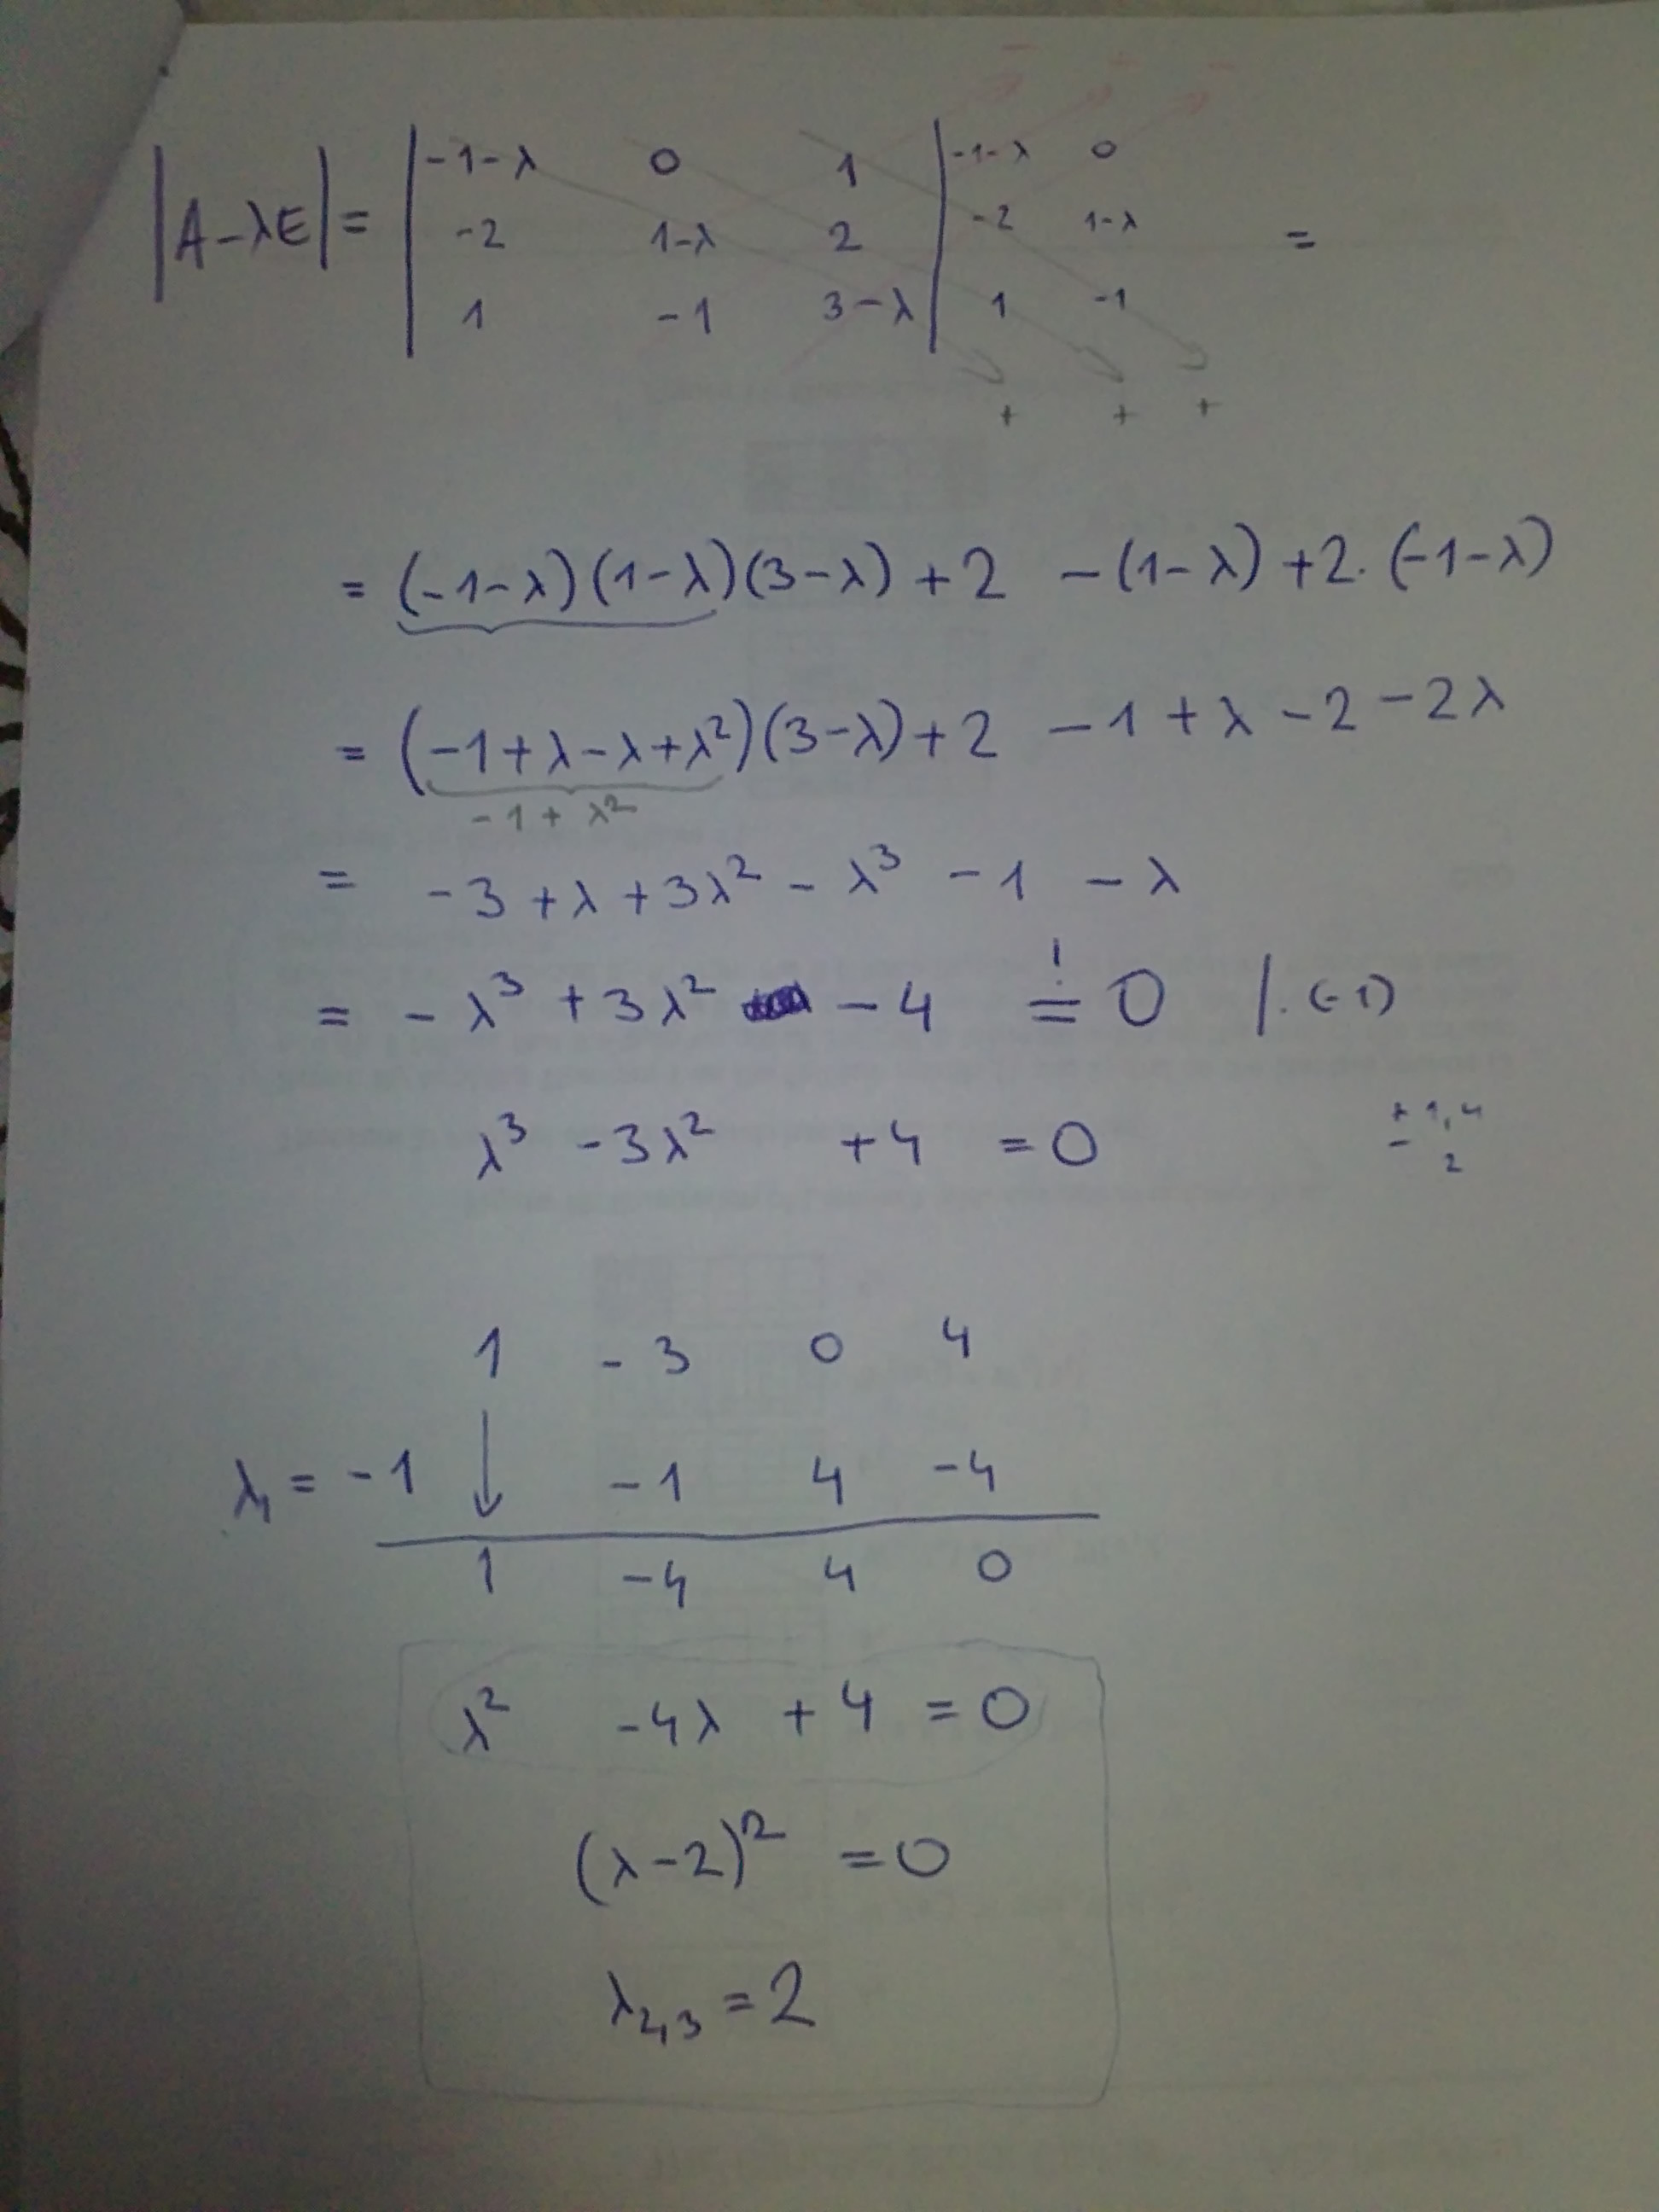 |A-λE| = | -1-λ 0 1 | -1-λ 0
-2 1-λ 2 | -2 1-λ =
1 -1 3-λ | 1 -1
+ + +
= (-1-λ)(1-λ)(3-λ) + 2 - (1-λ) + 2·(-1-λ)
= (-1+λ-λ+λ²)(3-λ) + 2 - 1 + λ - 2 - 2λ
-1 + λ²
= -3 + λ + 3λ² - λ³ - 1 - λ
= -λ³ + 3λ² - 4 =! 0 /·(-1)
λ³ - 3λ² + 4 = 0 ± 1, 4
2
1 -3 0 4
λ₁ = -1 ↓ -1 4 -4
1 -4 4 0
λ² - 4λ + 4 = 0
(λ-2)² = 0
λ₂,₃ = 2